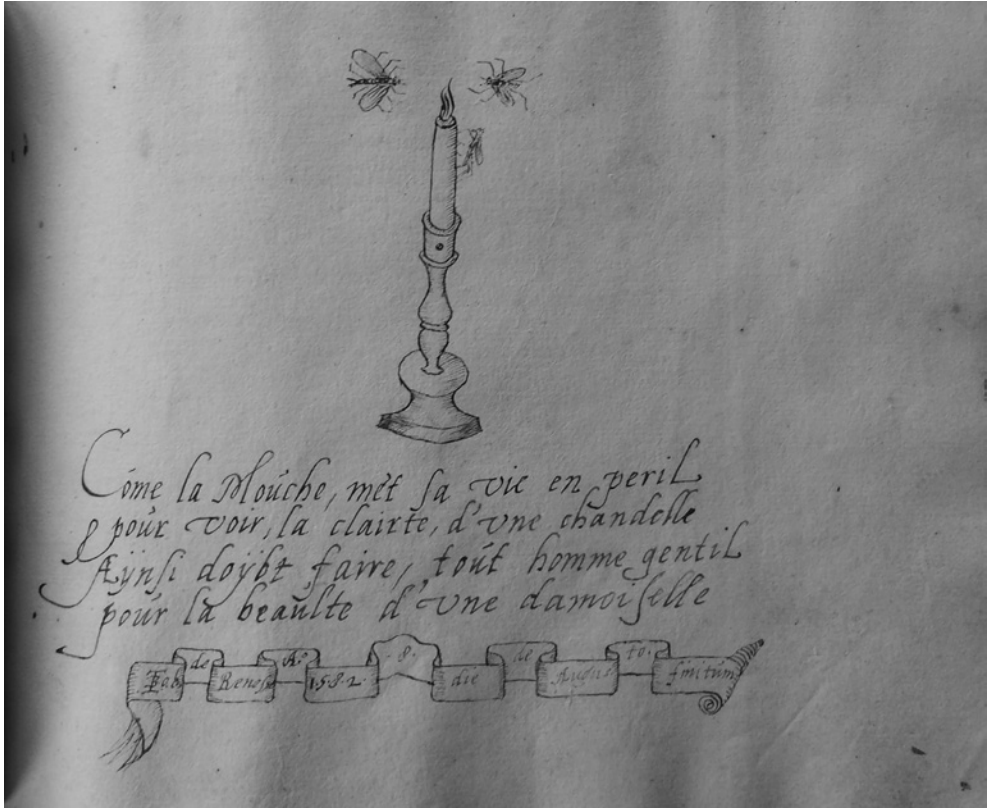 Cóme la Moúche, mét sa vie en peril
poúr voir, la clairte, d'vne chandelle
Aÿnsi doÿbt faire, toút homme gentil
poúr la beaúlte d'vne damoiselle
de A.º 8. de to.
Fab. 1.5.8.2. die Augus finitúm